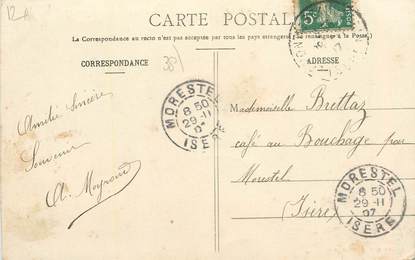 12A
CARTE POSTALE
(La Correspondance au recto n'est pas acceptée par tous les pays étrangers
(Se renseigner à la Poste.)
CORRESPONDANCE
38
ADRESSE
5c
MORESTEL
8 50
29 -11
07
ISÈRE
Amitié Sincère
Souvenir
Mademoiselle Brettaz
café au Bouchage par
Morestel
(Isère)
MORESTEL
8 50
29 -11
07
ISÈRE